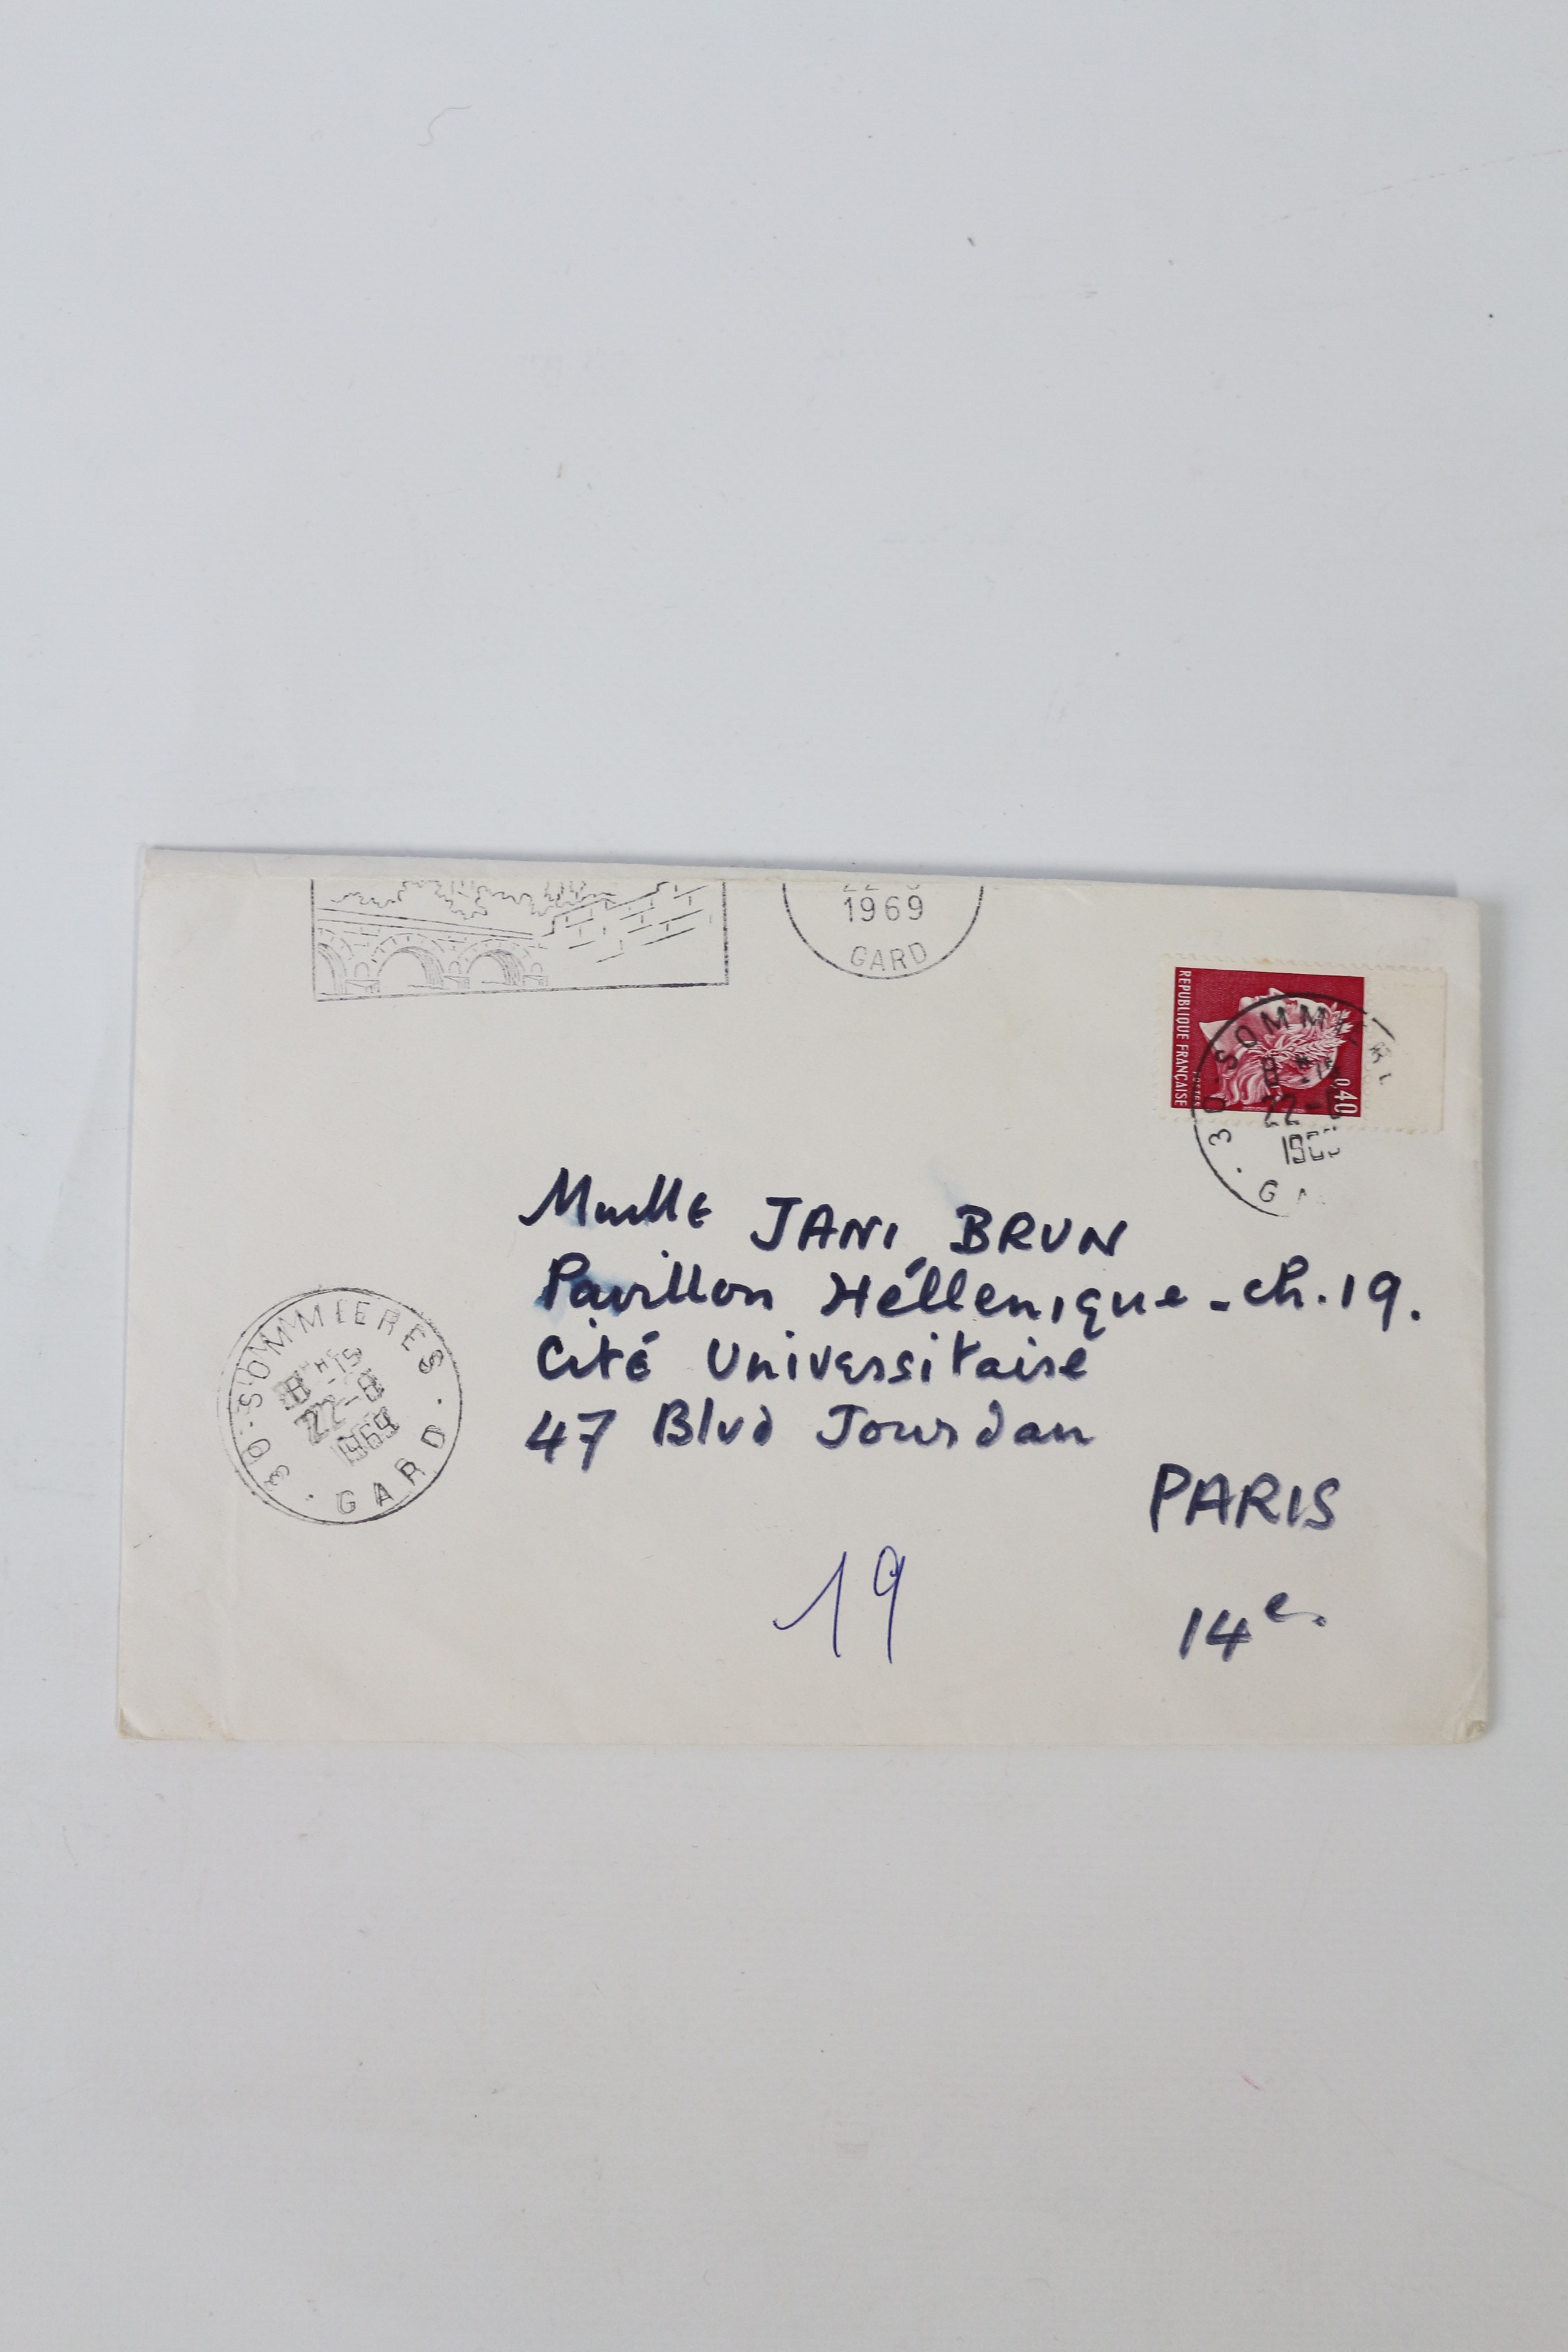 1969
GARD
REPUBLIQUE FRANÇAISE
POSTES
0,40
30-SOMMIERE
22-
G
Muelle JANI BRUN
Pavillon Héllenique - ch. 19.
Cité Universitaire
47 Blvd Jourdan
PARIS
14e.
19
30-SOMMIERES
8H-15
22-8
1969
GARD